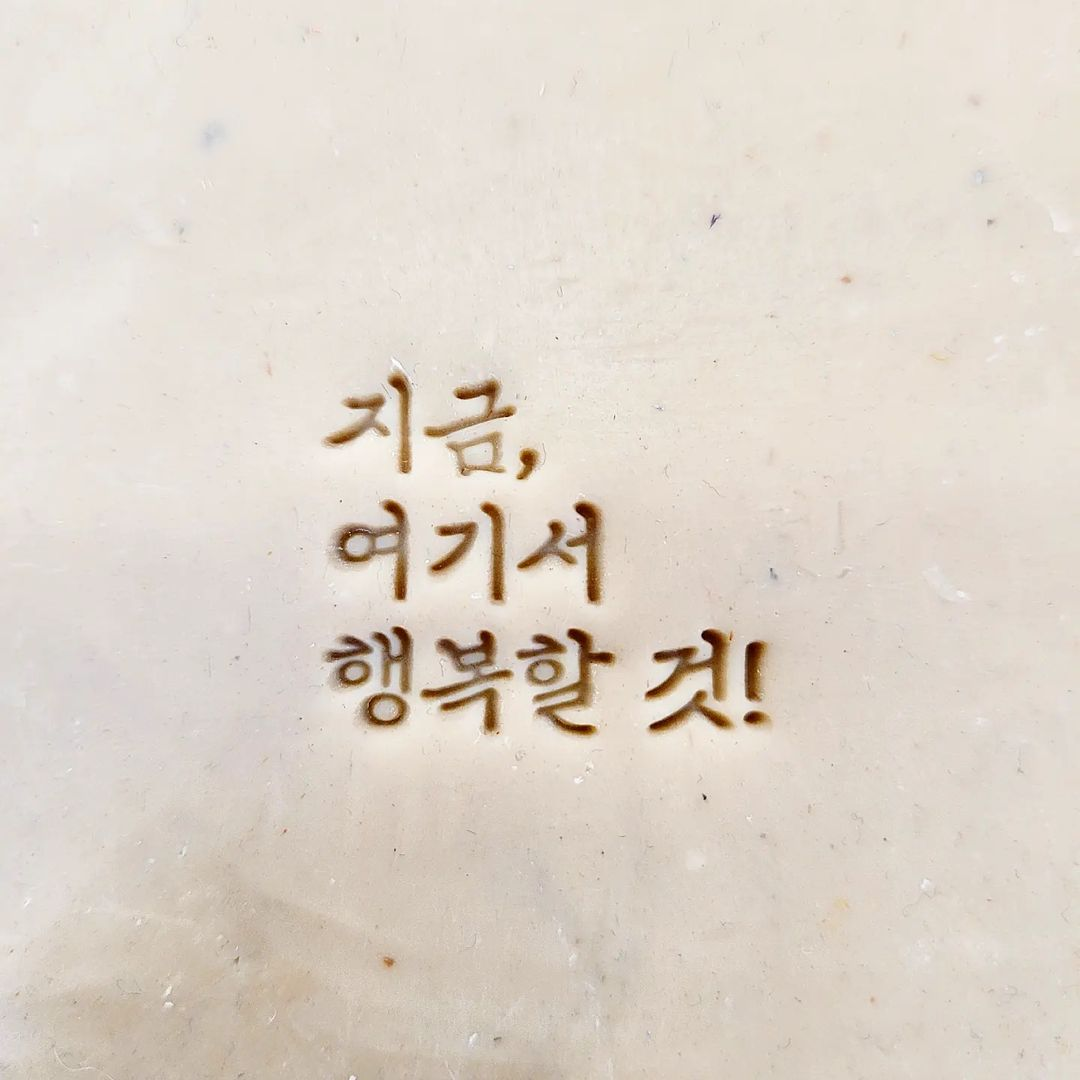 지금,
여기서
행복할 것!